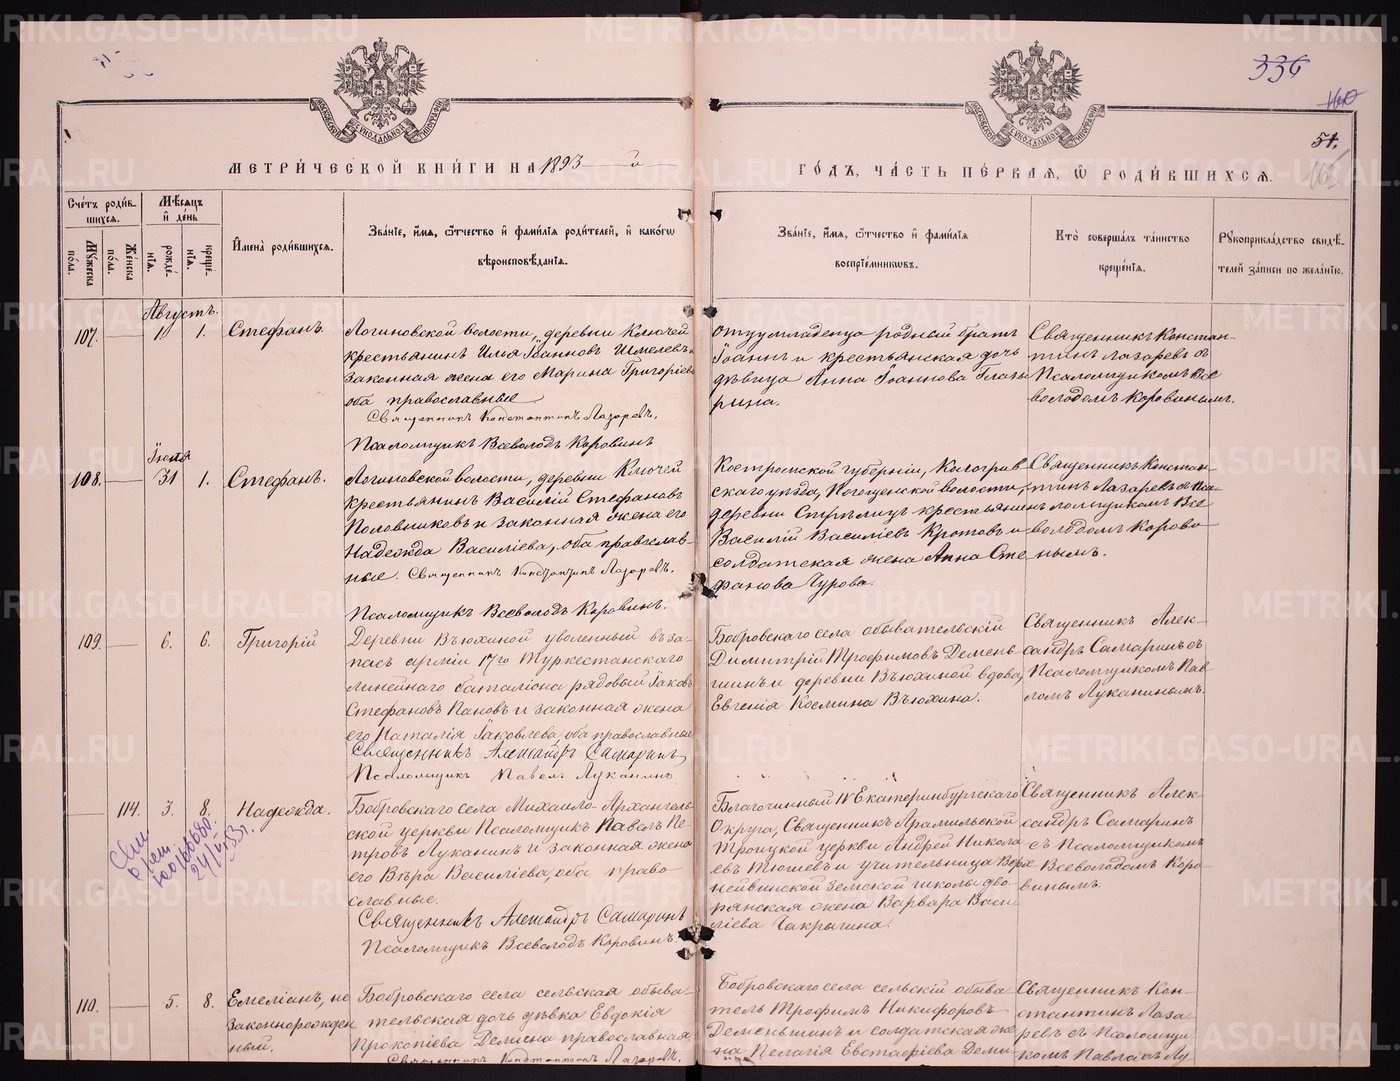 336
51.
МЕТРИ́ЧЕСКОЙ КНИ́ГИ НА 1893 й
ГО́ДЪ, ЧА́СТЬ ПЕ́РВАЯ, Ѡ РОДИ́ВШИХСѦ.
Сче́тъ роди́вшихся.
Мѣ́сяцъ и де́нь
Му́жеска по́ла.
Же́нска по́ла.
рожде́нія.
креще́нія.
Имена̀ роди́вшихся.
Зва́ніе, и́мя, ѻ́тчество и фами́лія роди́телей, и како́гѡ вѣроисповѣ́данія.
Зва́ніе, и́мя, ѻ́тчество и фами́лія воспріе́мниковъ.
Кто̀ соверша́лъ та́инство креще́нія.
Рукоприкла́дство свидѣ́телей за́писи по жела́нію.
Августъ.
107. — 1. 1. Стефанъ.
Логиновской волости, деревни Ключей
крестьянинъ Илія Іоанновъ Шмелевъ и
законная жена его Марина Григоріева
оба православные
Священникъ Константинъ Лазаревъ.
Псаломщикъ Всеволодъ Коровинъ
отцу младенца родный братъ
Іоаннъ и крестьянская дочь
дѣвица Анна Іоаннова Глазы
рина.
Священникъ Констан-
тинъ Лазаревъ съ
Псаломщикомъ Все
володомъ Коровинымъ.
Іюля
108. — 31 1. Стефанъ.
Логиновской волости, деревни Ключей
крестьянинъ Василій Стефановъ
Половниковъ и законная жена его
Надежда Василіева, оба православ-
ные. Священникъ Константинъ Лазаревъ.
Псаломщикъ Всеволодъ Коровинъ.
Костромской губерніи, Кологрив
скаго уѣзда, волости,
деревни крестьянинъ
Василій Василіевъ Кротовъ и
солдатская жена Анна Сте
фанова Чурова.
Священникъ Констан-
тинъ Лазаревъ съ Пса-
ломщикомъ Все
володомъ Корови
нымъ.
109. — 6. 6. Григорій
Деревни Вьюхиной уволенный въ за-
пасъ арміи 17го Туркестанскаго
линейнаго баталіона рядовый Іаковъ
Стефановъ Пановъ и законная жена
его Наталія Іаковлева, оба православные
Священникъ Александръ Самаринъ
Псаломщикъ Павелъ Луканинъ
Бобровскаго села обывательскій
Димитрій Трофимовъ Демень-
шинъ и деревни Вьюхиной вдова,
Евгенія Косьмина Вьюхина.
Священникъ Алек-
сандръ Самаринъ съ
Псаломщикомъ Пав-
ломъ Луканинымъ.
— 114. 3. 8. Надежда.
Бобровскаго села Михаило-Архангель-
ской церкви Псаломщикъ Павелъ Пе-
тровъ Луканинъ и законная жена
его Вѣра Василіева, оба право
славные.
Священникъ Александръ Самаринъ
Псаломщикъ Всеволодъ Коровинъ.
Благочинный IV Екатеринбургскаго
Округа, Священникъ Арамильской
Троицкой церкви Андрей Никола
евъ Тюшевъ и учительница Верх
нейвинской земской школы дво
рянская жена Варвара Васи
ліева Чакрыгина.
Священникъ Алек-
сандръ Самаринъ
съ Псаломщикомъ
Всеволодомъ Коро-
винымъ.
110. — 5. 8. Емеліанъ, не
законнорожден
ный.
Бобровскаго села сельская обыва-
тельская дочь дѣвка Евдокія
Прокопіева Демина православная.
Священникъ Константинъ Лазаревъ.
Бобровскаго села сельскій обыва
тель Трофимъ Никифоровъ
Деменьшинъ и солдатская же
на Пелагія Евстафіева Деми
Священникъ Кон-
стантинъ Лаза-
ревъ съ Псаломщи-
комъ Павломъ Лу